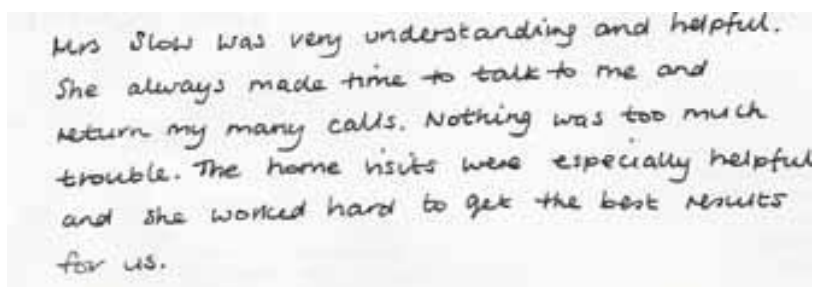 Mrs Slow was very understanding and helpful.
She always made time to talk to me and
return my many calls. Nothing was too much
trouble. The home visits were especially helpful
and she worked hard to get the best results
for us.